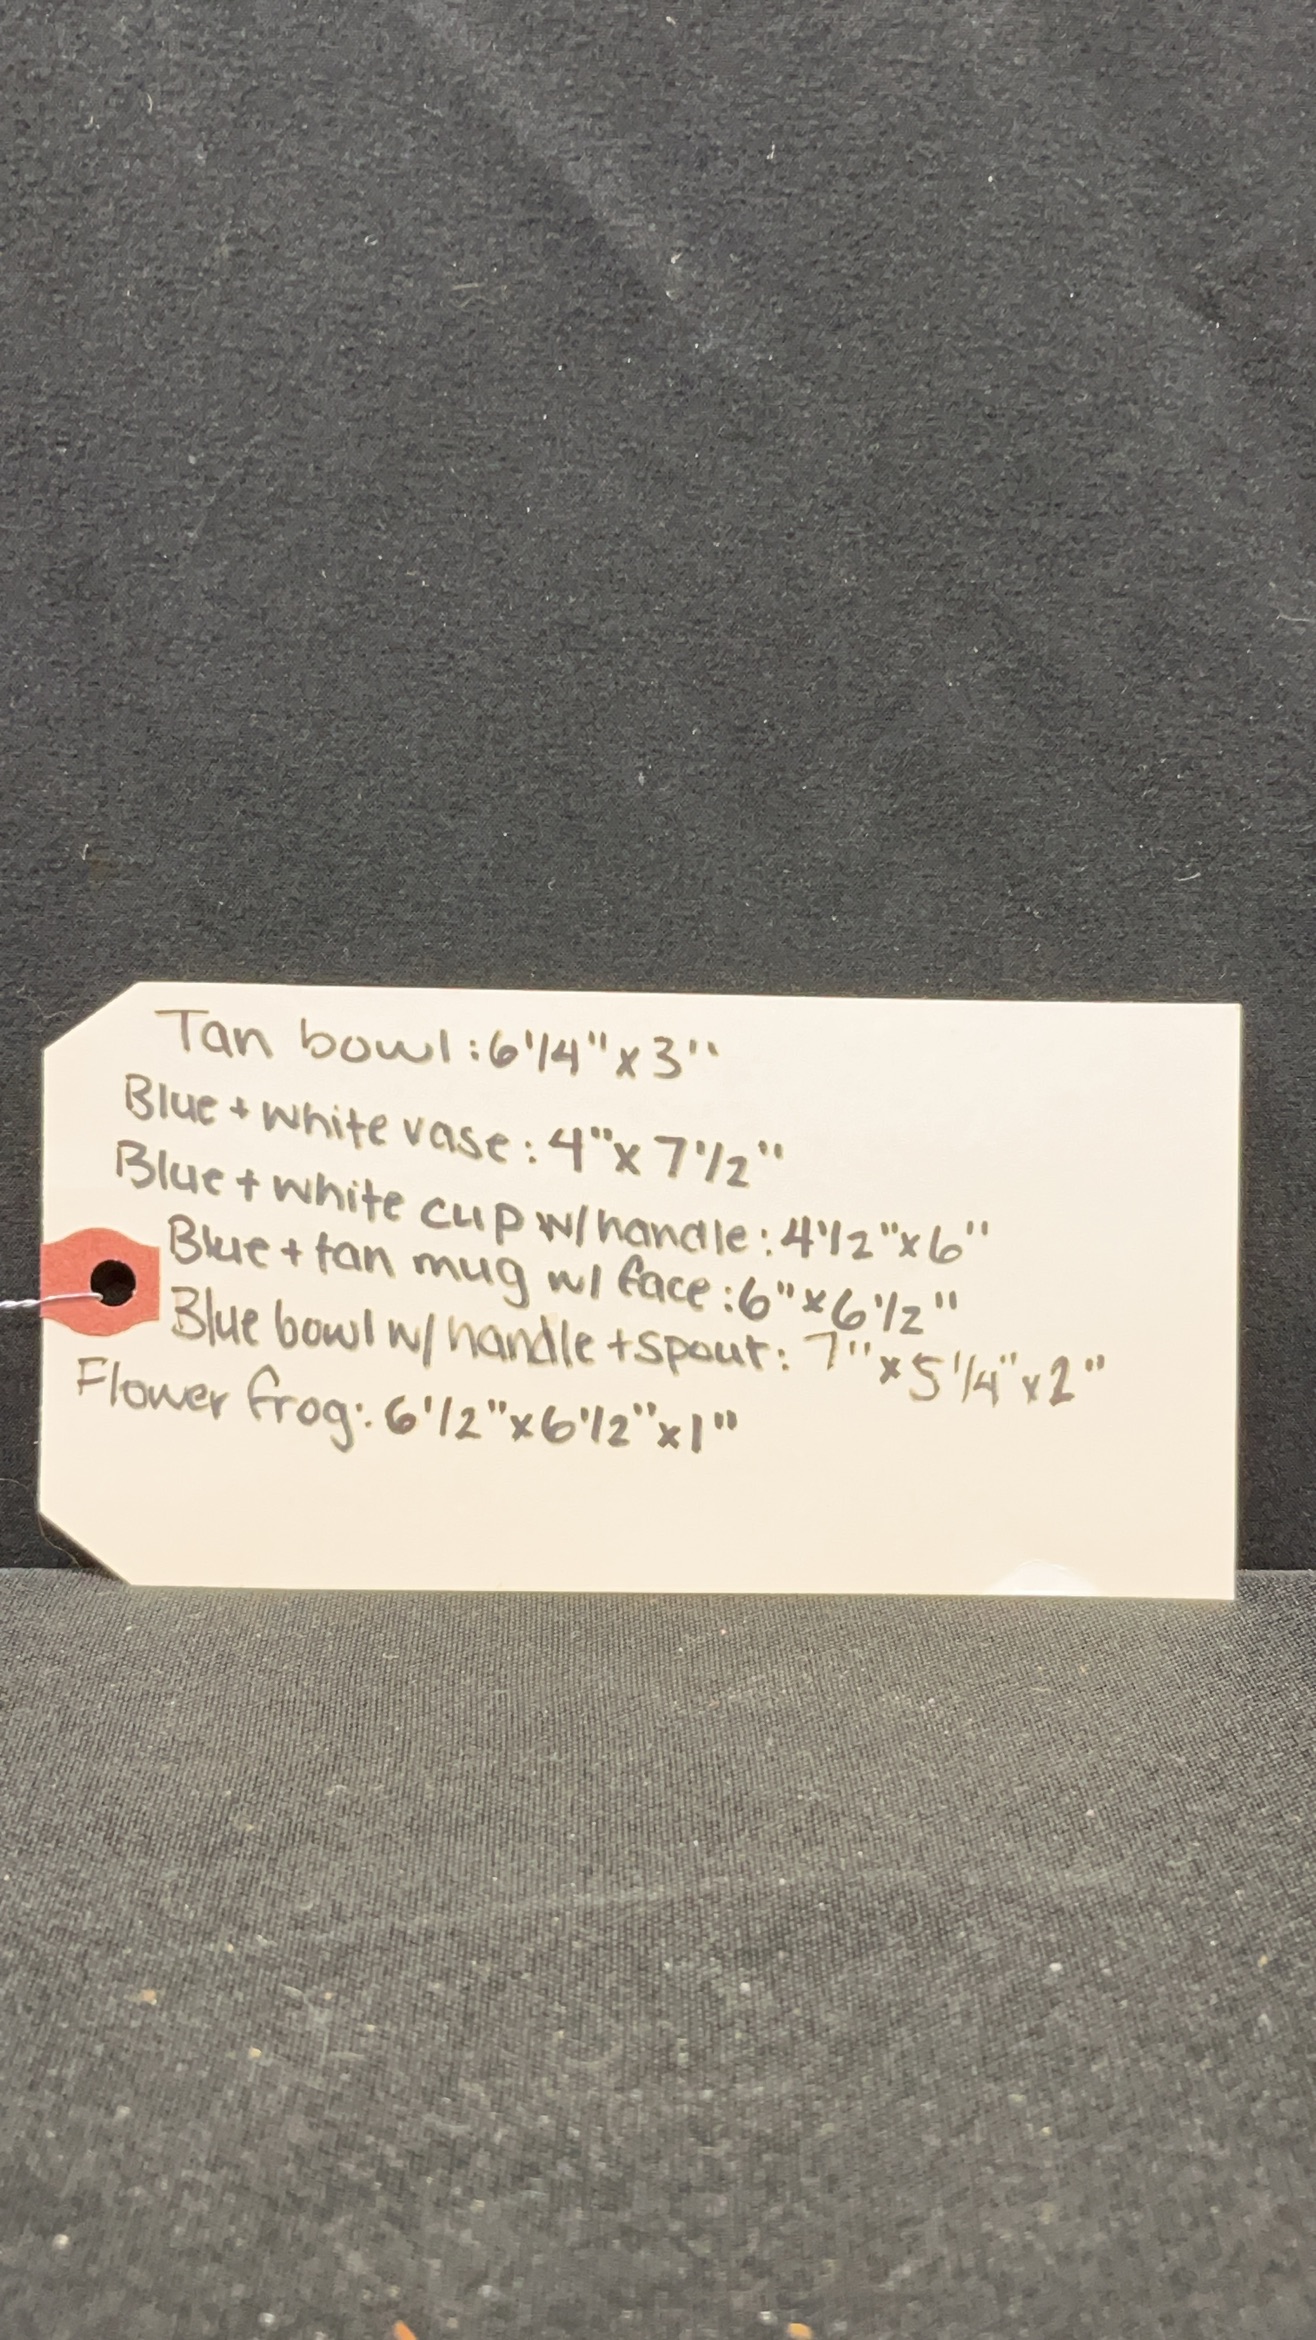 Tan bowl: 6 1/4" x 3"
Blue + white vase: 4" x 7 1/2"
Blue + white cup w/ handle: 4 1/2" x 6"
Blue + tan mug w/ face: 6" x 6 1/2"
Blue bowl w/ handle + spout: 7" x 5 1/4" x 2"
Flower frog: 6 1/2" x 6 1/2" x 1"